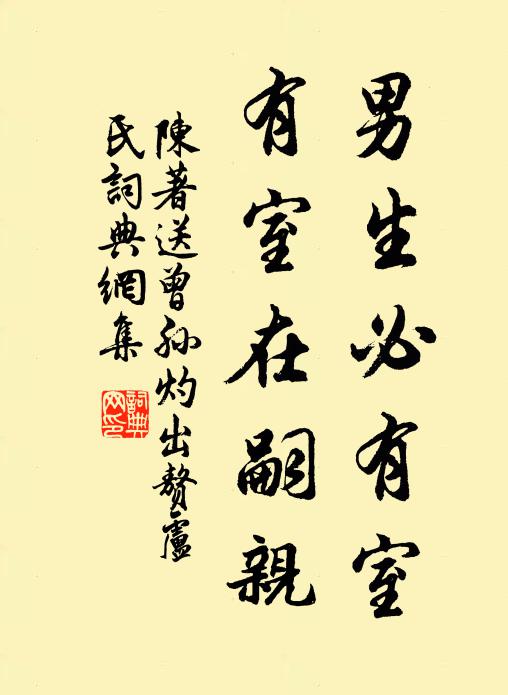 男生必有室
有室在嗣親
陳著送曾孫灼出贅盧
氏詞典網集
詞典
网印